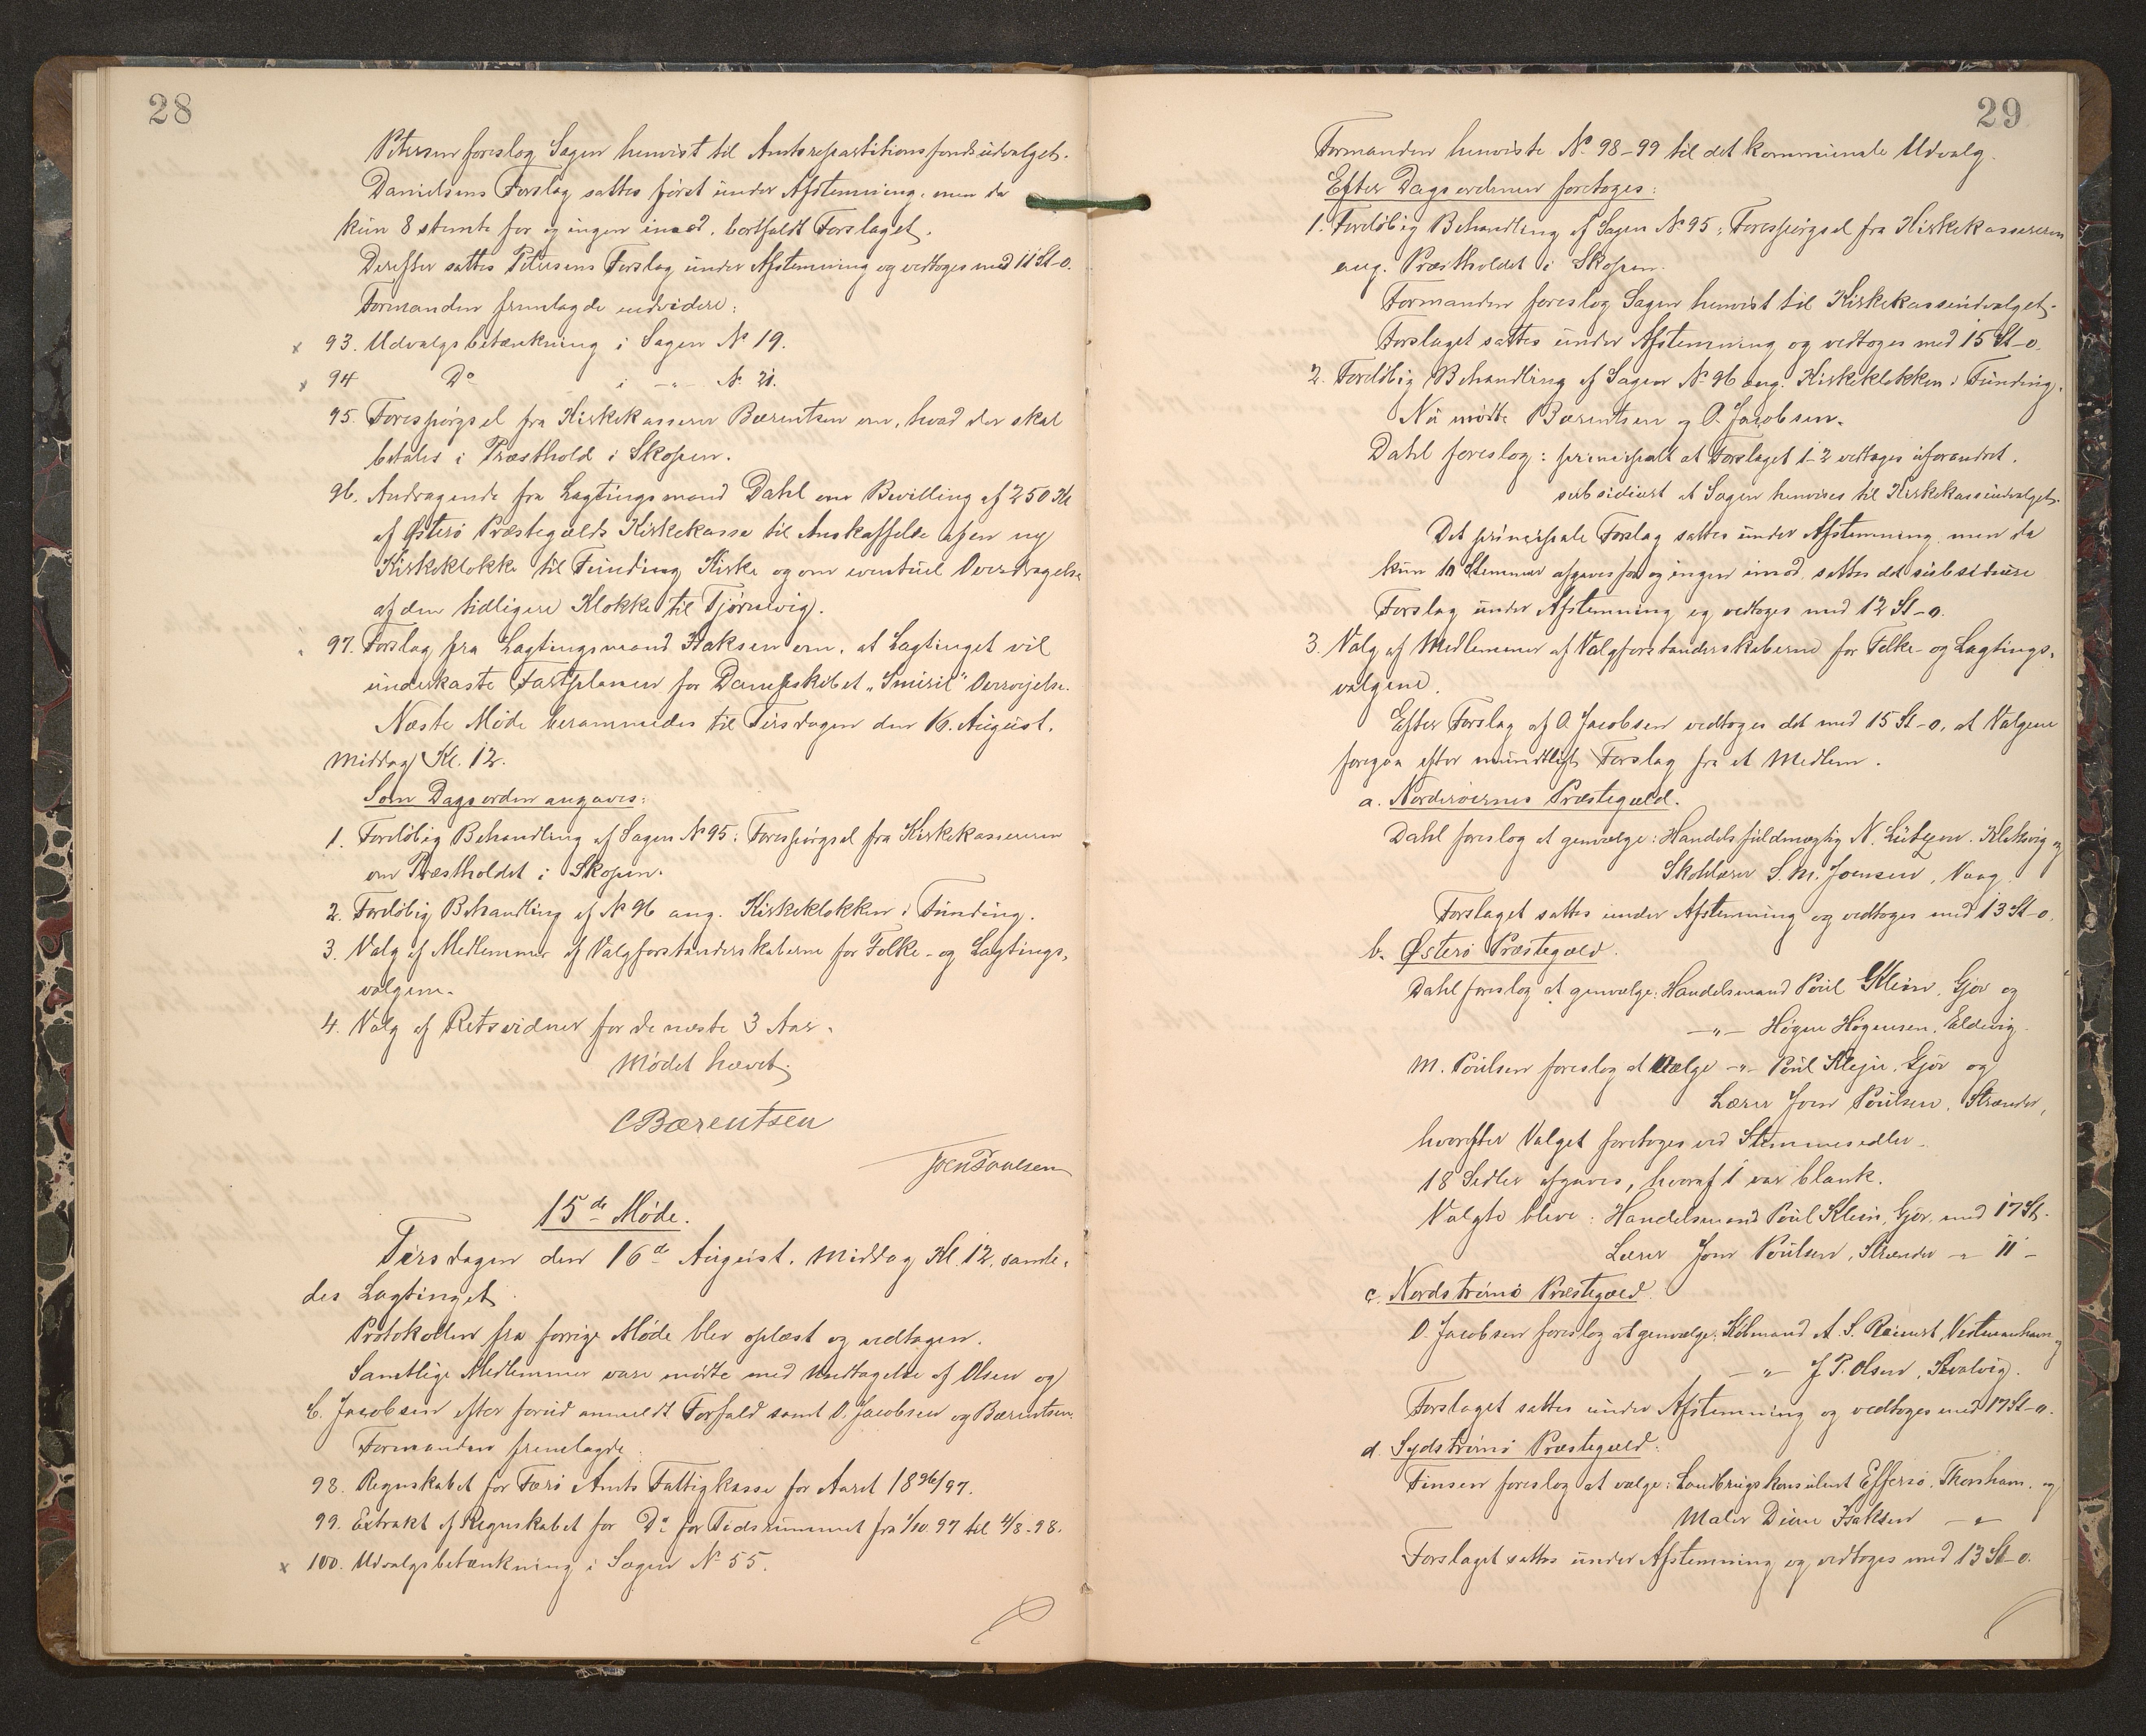 28
Petersen foreslog Sagen henvist til Amtsrepartitionsfondsudvalget.
Danielsens Forslag sattes først under Afstemning, men da
kun 8 stemte for og ingen imod, bortfaldt Forslaget.
Derefter sattes Petersens Forslag under Afstemning og vedtoges med 11 St-0.
Formanden fremlagde endvidere:
x 93. Udvalgsbetænkning i Sagen No 19.
x 94 Do i -"- No 21.
95. Forespørgsel fra Kirkekasserer Bærentsen om, hvad der skal
betales i Præsthold i Skopen.
96. Andragende fra Lagtingsmand Dahl om Bevilling af 250 Kr
af Østerø Præstegælds Kirkekasse til Anskaffelse af en ny
Kirkeklokke til Funding Kirke og om eventuel Overdragelse
af den tidligere Klokke til Tjørnevig.
97. Forslag fra Lagtingsmand Isaksen om, at Lagtinget vil
underkaste Fartplanen for Dampskibet "Smiril" Overvejelse.
Næste Møde berammedes til Tirsdagen den 16. August,
Middag Kl. 12.
Som Dagsorden angaves:
1. Foreløbig Behandling af Sagen No 95: Forespørgsel fra Kirkekassereren
om Præstholdet i Skopen.
2. Foreløbig Behandling af No 96 ang. Kirkeklokken i Funding.
3. Valg af Medlemmer af Valgforstanderskaberne for Folke- og Lagtings-
valgene.
4. Valg af Retsvidner for de næste 3 Aar.
Mødet hævet.
C Bærentsen
Joen Poulsen
15de Møde.
Tirsdagen den 16de August, Middag Kl. 12, samle-
des Lagtinget.
Protokollen fra forrige Møde blev oplæst og vedtagen.
Samtlige Medlemmer vare mødte med Undtagelse af Olsen og
C. Jacobsen efter forud anmeldt Forfald samt O. Jacobsen og Bærentsen.
Formanden fremlagde:
98. Regnskabet for Færø Amts Fattigkasse for Aaret 1896/97.
99. Extrakt af Regnskabet for Do for Tidsrummet fra 1/10 97 til 4/8-98.
x 100. Udvalgsbetænkning i Sagen No 55.
29
Formanden henviste No 98-99 til det kommunale Udvalg.
Efter Dagsordenen foretoges:
1. Foreløbig Behandling af Sagen No 95: Forespørgsel fra Kirkekassereren
ang. Præstholdet i Skopen.
Formanden foreslog Sagen henvist til Kirkekasseudvalget.
Forslaget sattes under Afstemning og vedtoges med 15 St-0.
2. Foreløbig Behandling af Sagen No 96 ang. Kirkeklokken i Funding.
Nu mødte Bærentsen og O. Jacobsen.
Dahl foreslog: principalt at Forslaget 1-2 vedtages uforandret.
subsidiært at Sagen henvises til Kirkekasseudvalget.
Det principale Forslag sattes under Afstemning, men da
kun 10 Stemmer afgaves for og ingen imod, sattes det subsidiære
Forslag under Afstemning og vedtoges med 12 St-0.
3. Valg af Medlemmer af Valgforstanderskaberne for Folke- og Lagtings-
valgene.
Efter Forslag af O. Jacobsen vedtoges det med 15 St-0, at Valgene
foregaa efter mundtligt Forslag fra et Medlem.
a. Norderøernes Præstegæld.
Dahl foreslog at genvælge: Handelsfuldmægtig N. Lützen, Klaksvig og
Skolelærer S. M. Joensen, Vaag.
Forslaget sattes under Afstemning og vedtoges med 13 St-0.
b. Østerø Præstegæld.
Dahl foreslog at genvælge: Handelsmand Poul Klein, Gjov og
-"- Høgne Høgnesen, Eldevig.
M. Poulsen foreslog at vælge -"- Poul Klejn, Gjov og
Lærer Joen Poulsen, Strænder,
hvorefter Valget foretoges ved Stemmesedler.
18 Sedler afgaves, hvoraf 1 var blank.
Valgte bleve: Handelsmand Poul Klein, Gjov, med 17 St.
Lærer Joen Poulsen, Strænder -"- 11 -
c. Nordstrømø Præstegæld.
O. Jacobsen foreslog at genvælge: Købmand A. S. Reinert, Vestmanhavn og
-"- J. P. Olsen, Kvalvig.
Forslaget sattes under Afstemning og vedtoges med 17 St-0.
d. Sydstrømø Præstegæld.
Finsen foreslog at vælge: Landbrugskonsulent Effersø, Thorshavn, og
Maler Dine Isaksen -"-
Forslaget sattes under Afstemning og vedtoges med 13 St-0.